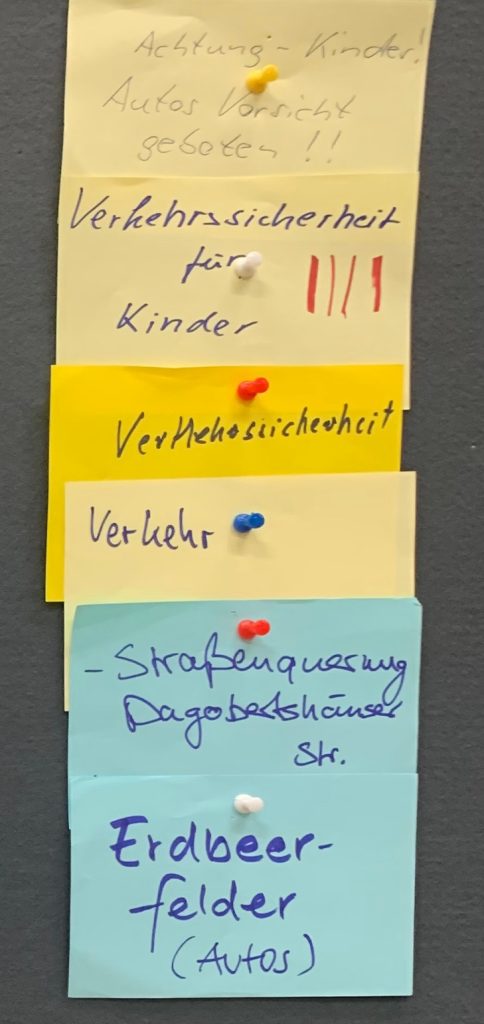 Achtung - Kinder!
Autos Vorsicht
geboten !!
Verkehrssicherheit
für
Kinder
Verkehrssicherheit
Verkehr
- Straßenquerung
Dagobertshäuser
Str.
Erdbeer-
felder
(Autos)